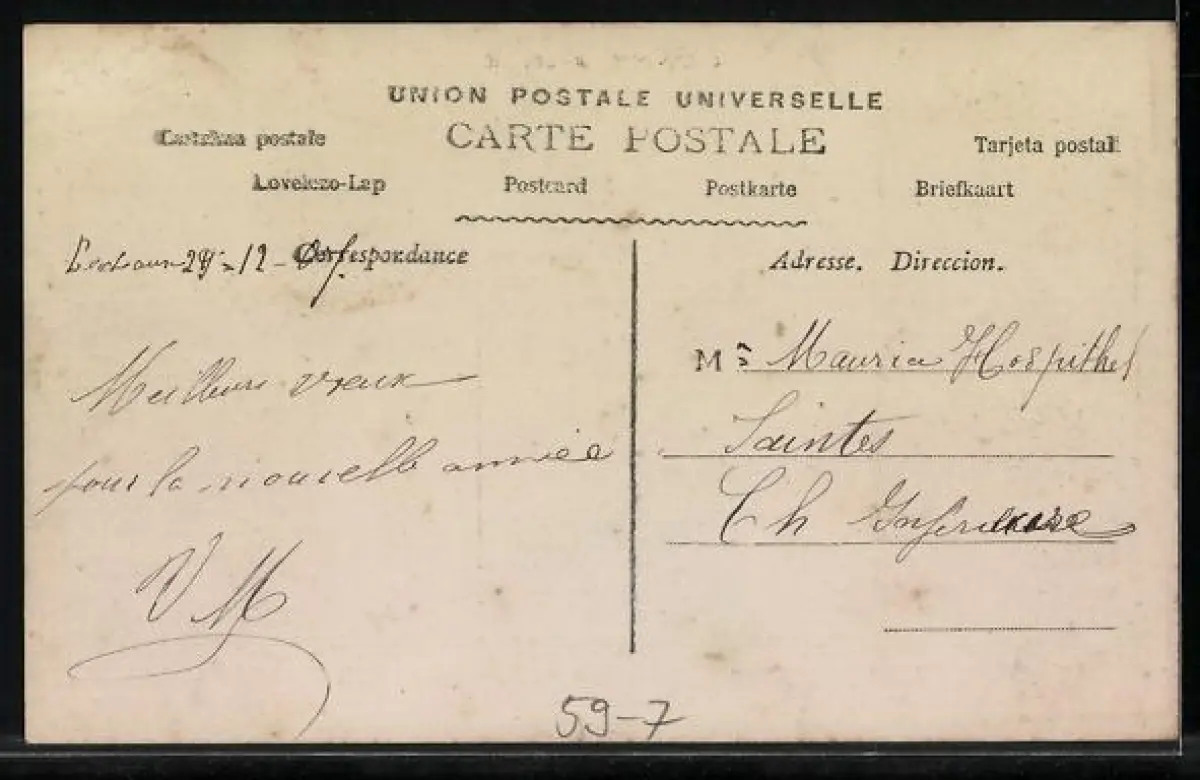 UNION POSTALE UNIVERSELLE
CARTE POSTALE
postale
Tarjeta postal
Levelezo-Lap
Postcard
Postkarte
Briefkaart
29-12-07
Correspondance
Adresse. Direccion.
Meilleurs vœux
pour la nouvelle année
V M
M Maurice Hospithel
Saintes
Ch Inférieure
59-7